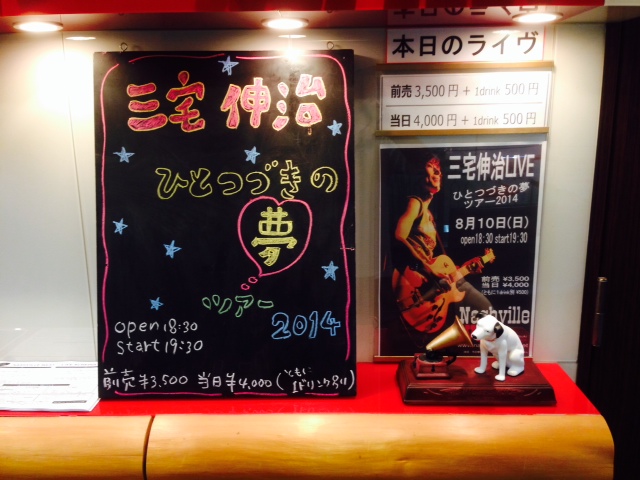 三宅 伸治
ひとつづきの
夢
ツアー
2014
open 18:30
start 19:30
前売 ¥3,500 当日 ¥4,000 (ともに 1ドリンク別)
本日のライヴ
前売 3,500 円 + 1drink 500 円
当日 4,000 円 + 1drink 500 円
三宅伸治LIVE
ひとつづきの夢
ツアー2014
8月10日(日)
open18:30 start19:30
前売 ¥3,500
当日 ¥4,000
(ともに1drink別 ¥500)
Nashville